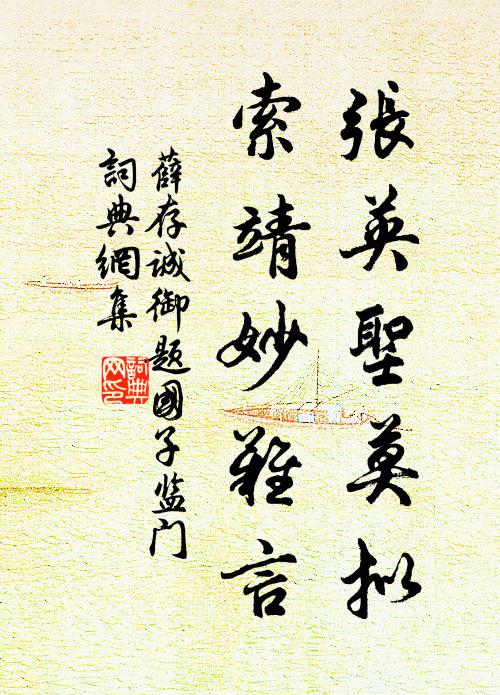 張英聖莫擬
索靖妙難言
薛存誠御題國子监门
詞典網集
詞典网印